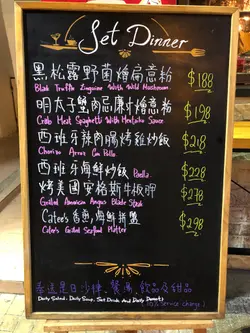 Set Dinner
黑松露野菌燴扁意粉 $188
Black Truffle Linguine With Wild Mushroom
明太子蟹肉忌廉汁燴意粉 $198
Crab Meat Spaghetti With Mentaiko Sauce
西班牙辣肉腸烤雞炒飯 $218
Chorizo Arroz Con Pollo
西班牙海鮮炒飯 $228
Paella
烤美國安格斯牛板腱 $278
Grilled American Angus Blade Steak
Catee's 香煎海鮮拼盤 $298
Catee's Grilled Seafood Platter
奉送是日沙律、餐湯、飲品及甜品
Daily Salad, Daily Soup, Soft Drink And Daily Dessert
10% Service charge